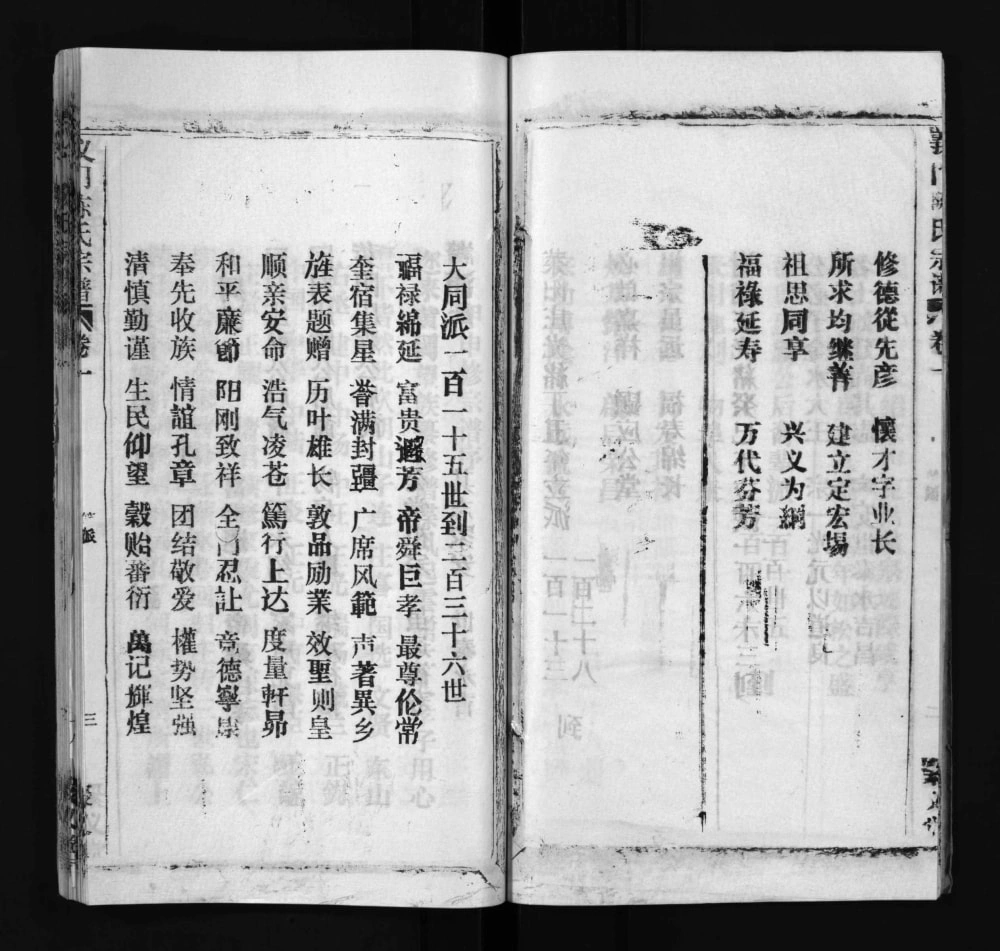 修德從先彦 懷才字业长
所求均继善 建立定宏場
祖思同享 兴义为綱
福祿延寿 万代芬芳
義门陳氏宗谱 卷一
二
大同派一百一十五世到二百三十六世
福禄綿延 富贵遐芳 帝舜巨孝 最尊伦常
奎宿集星 誉满封疆 广席风範 声著異乡
旌表题赠 历叶雄长 敦品励業 效聖则皇
顺亲安命 浩气凌苍 篤行上达 度量軒昴
和平廉節 阳刚致祥 全门忍让 德寧
奉先收族 情誼孔章 团结敬爱 權势坚强
清慎勤谨 生民仰望 穀贻蕃衍 萬记辉煌
义门陈氏宗譜 卷一
派
三